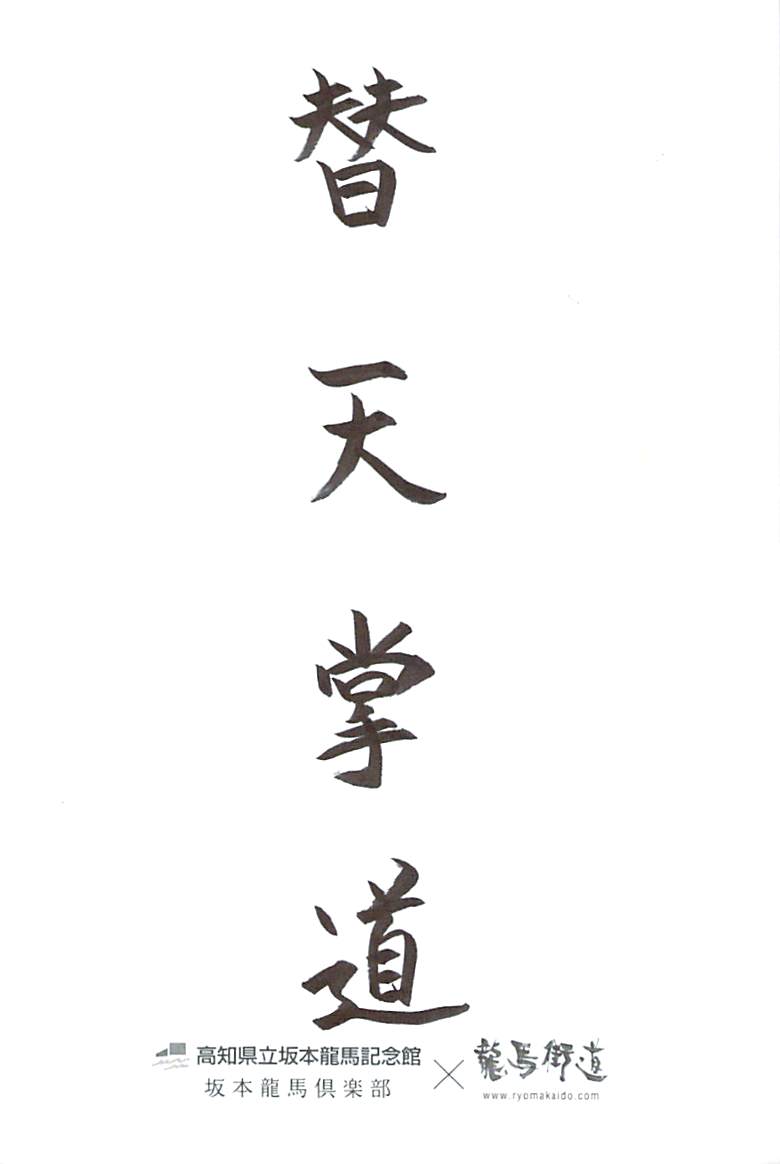 替天掌道
高知県立坂本龍馬記念館
坂本龍馬倶楽部
×
龍馬街道
www.ryomakaido.com